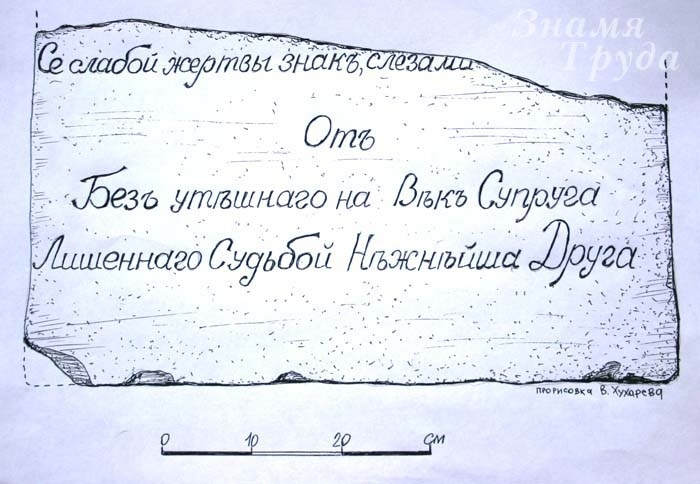 Знамя
Труда
Се слабой жертвы знакъ, слезами
Отъ
Безъ утѣшнаго на Вѣкъ Супруга
Лишеннаго Судьбой Нѣжнѣйша Друга
прорисовка В. Хухарева
0 10 20 см